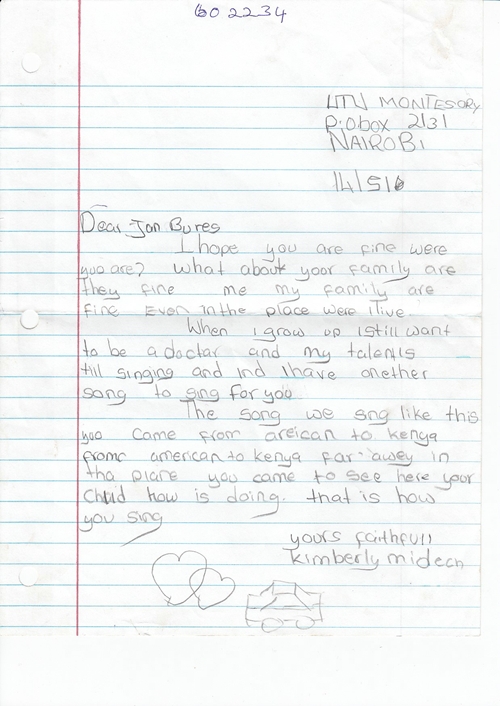 602234
LITTLE MONTESORY
P.O box 2131
NAIROBI
14/5/6
Dear Jon Bures
I hope you are fine were
yoo are? What about yoor family are
they fine me my family are
fine Even in the place were I live.
When i grow up i still want
to be a doctar and my talents
till singing and ind I have onether
song to sing for yoo
The song we sng like this
yoo came from areican to kenya
from american to kenya far awey in
tha plare you came to see here your
Child how is doing. that is how
you sing
yours faithfull
kimberly midech